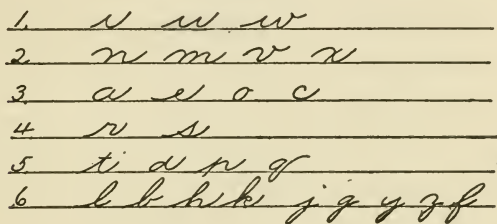 1. i u w
2 n m v x
3. a e o c
4 r s
5. t d p q
6 l b h k j g y z f